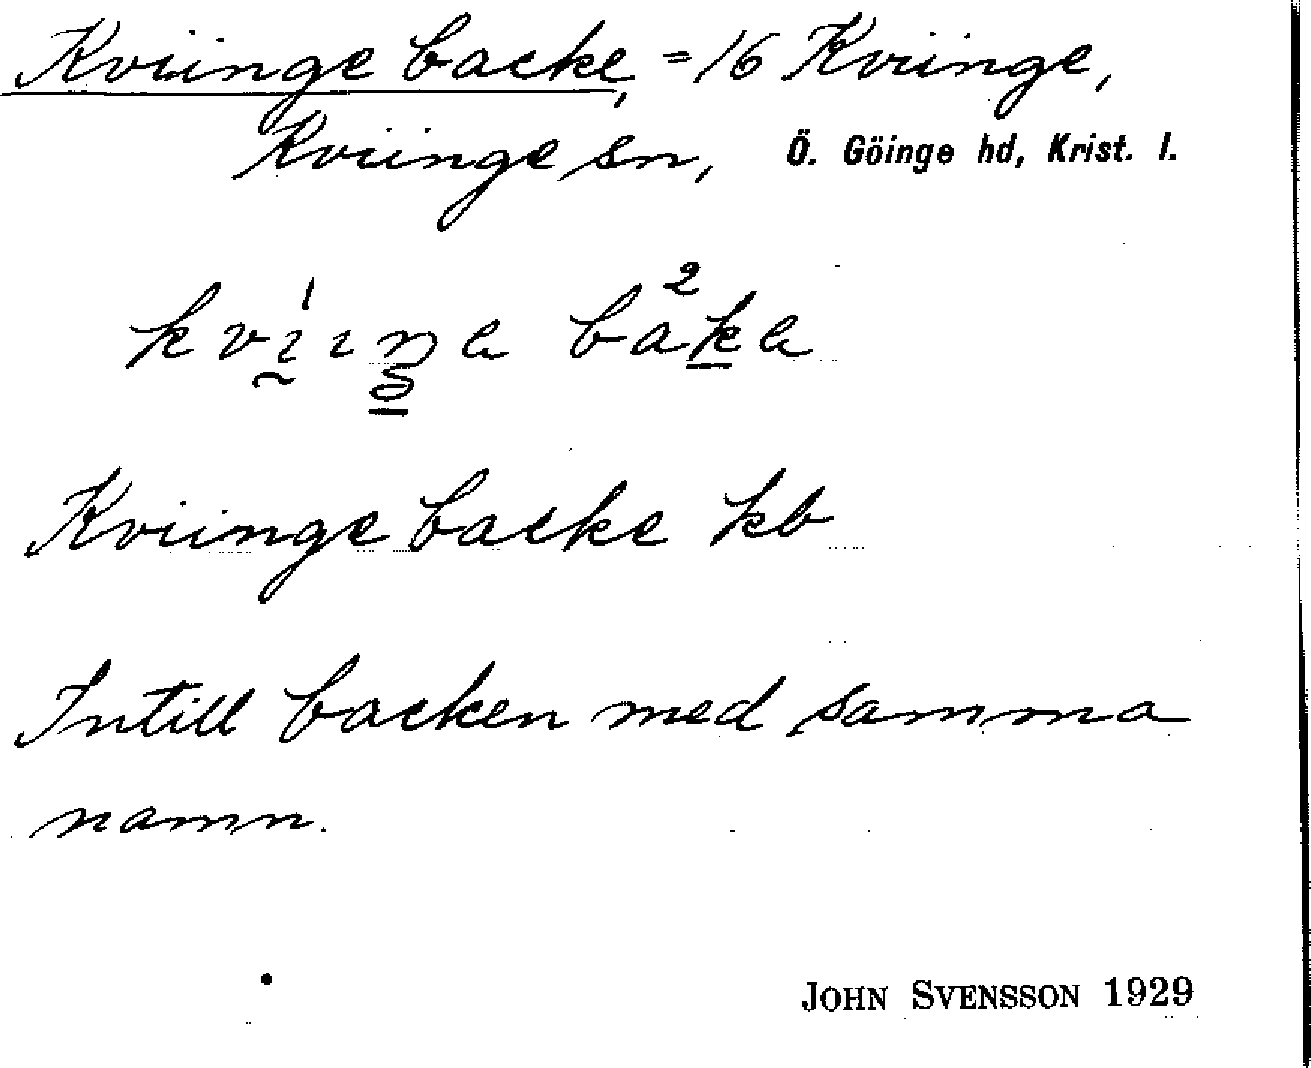 Kviinge backe, = 16 Kviinge,
Kviinge sn, Ö. Göinge hd, Krist. l.
Kviinge backe kb
Intill backen med samma
namn.
JOHN SVENSSON 1929